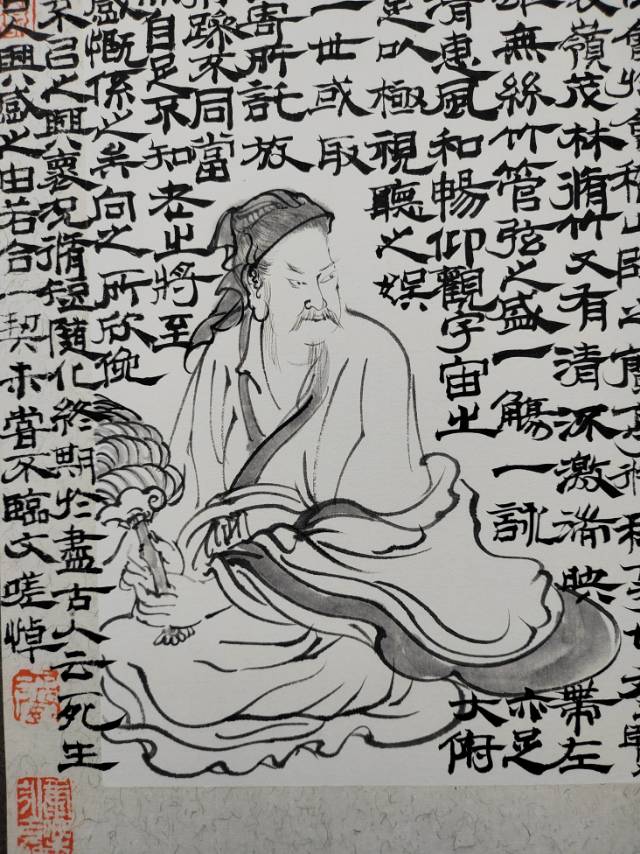 會稽山陰之蘭亭
嶺茂林脩竹又有清流激湍映帶左
無絲竹管弦之盛一觴一詠亦足
清惠風和暢仰觀宇宙之大俯
足以極視聽之娛
一世或取
寄所託放
躁不同當
自足不知老之將至
感慨係之矣向之所欣俛
不以之興懷況脩短隨化終期於盡古人云死生
人興感之由若合一契未嘗不臨文嗟悼